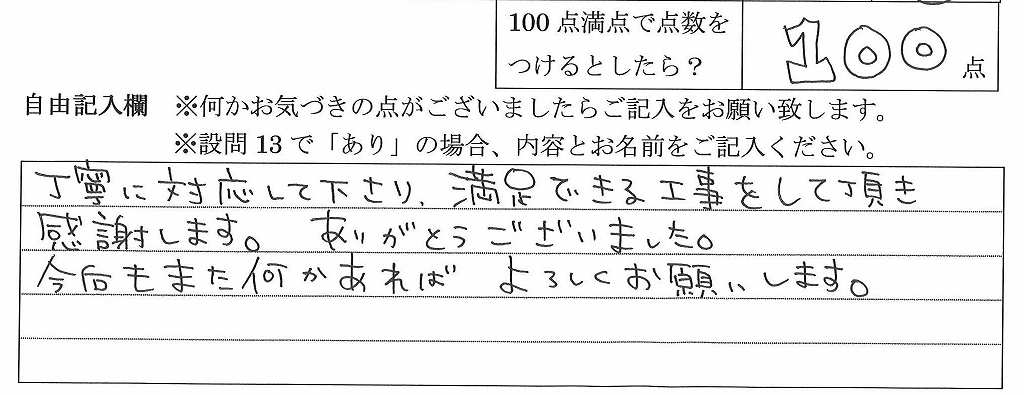 100点満点で点数を
つけるとしたら？
100点
自由記入欄 ※何かお気づきの点がございましたらご記入をお願い致します。
※設問13で「あり」の場合、内容とお名前をご記入ください。
丁寧に対応して下さり、満足できる工事をして頂き
感謝します。 ありがとうございました。
今后もまた何かあれば よろしくお願いします。